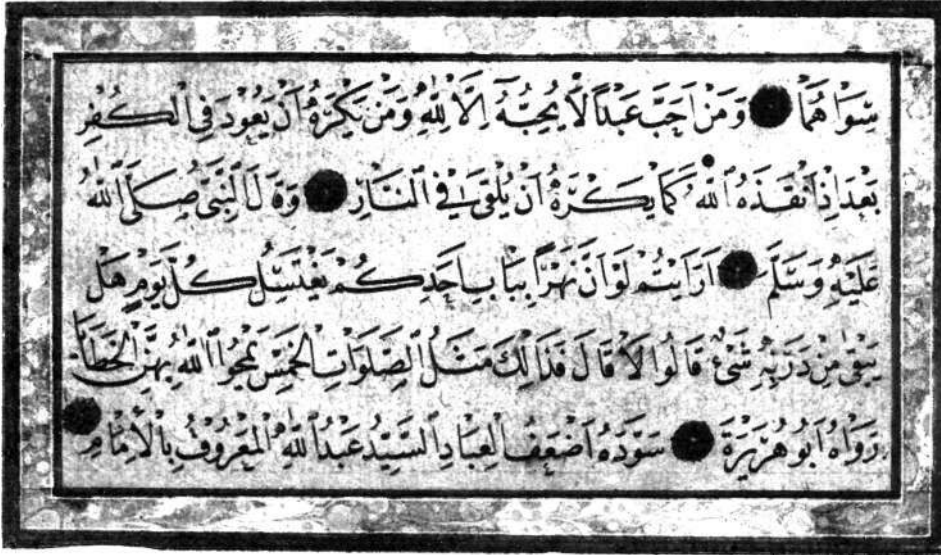 سِوَاهُمَا وَمَنْ اَحَبَّ عَبْدًا لَا يُحِبُّهُ اِلَّا لِلّٰهِ وَمَنْ يَكْرَهُ اَنْ يَعُودَ فِي الْكُفْرِ
بَعْدَ اِذْ اَنْقَذَهُ اللّٰهُ كَمَا يَكْرَهُ اَنْ يُلْقٰى فِي النَّارِ وَقَالَ النَّبِيُّ صَلَّى اللّٰهُ
عَلَيْهِ وَسَلَّمَ اَرَاَيْتُمْ لَوْ اَنَّ نَهْرًا بِبَابِ اَحَدِكُمْ يَغْتَسِلُ كُلَّ يَوْمٍ هَلْ
يَبْقٰى مِنْ دَرَنِهِ شَيْءٌ قَالُوا لَا قَالَ فَذَالِكَ مَثَلُ الصَّلَوَاتِ الْخَمْسِ يَمْحُوا اللّٰهُ بِهِنَّ الْخَطَايَا
رَوَاهُ اَبُو هُرَيْرَةَ سَوَّدَهُ اَضْعَفُ الْعِبَادِ السَّيِّدُ عَبْدُ اللّٰهِ الْمَعْرُوفُ بِالْاِمَامِ